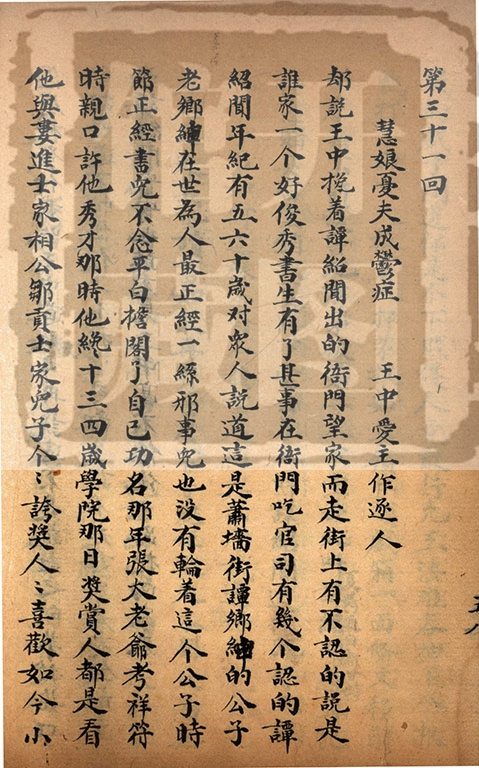 第三十一回
慧娘憂夫成鬱症 王中愛主作逐人
却説王中挽着譚紹聞出的衙門望家而走街上有不認的説是
誰家一个好俊秀書生有了甚事在衙門吃官司有幾个認的譚
紹聞年紀有五六十歲对衆人説道這是蕭墻街譚鄉紳的公子
老鄉紳在世為人最正經一絲邪事兒也没有輪着這个公子時
節正經書兒不念平白擔閣了自己功名那年張大老爺考祥符
時親口許他秀才那時他纔十三四歲學院那日奬賞人都是看
他與婁進士家相公鄒貢士家兒子个〻誇奬人〻喜歡如今小
五八